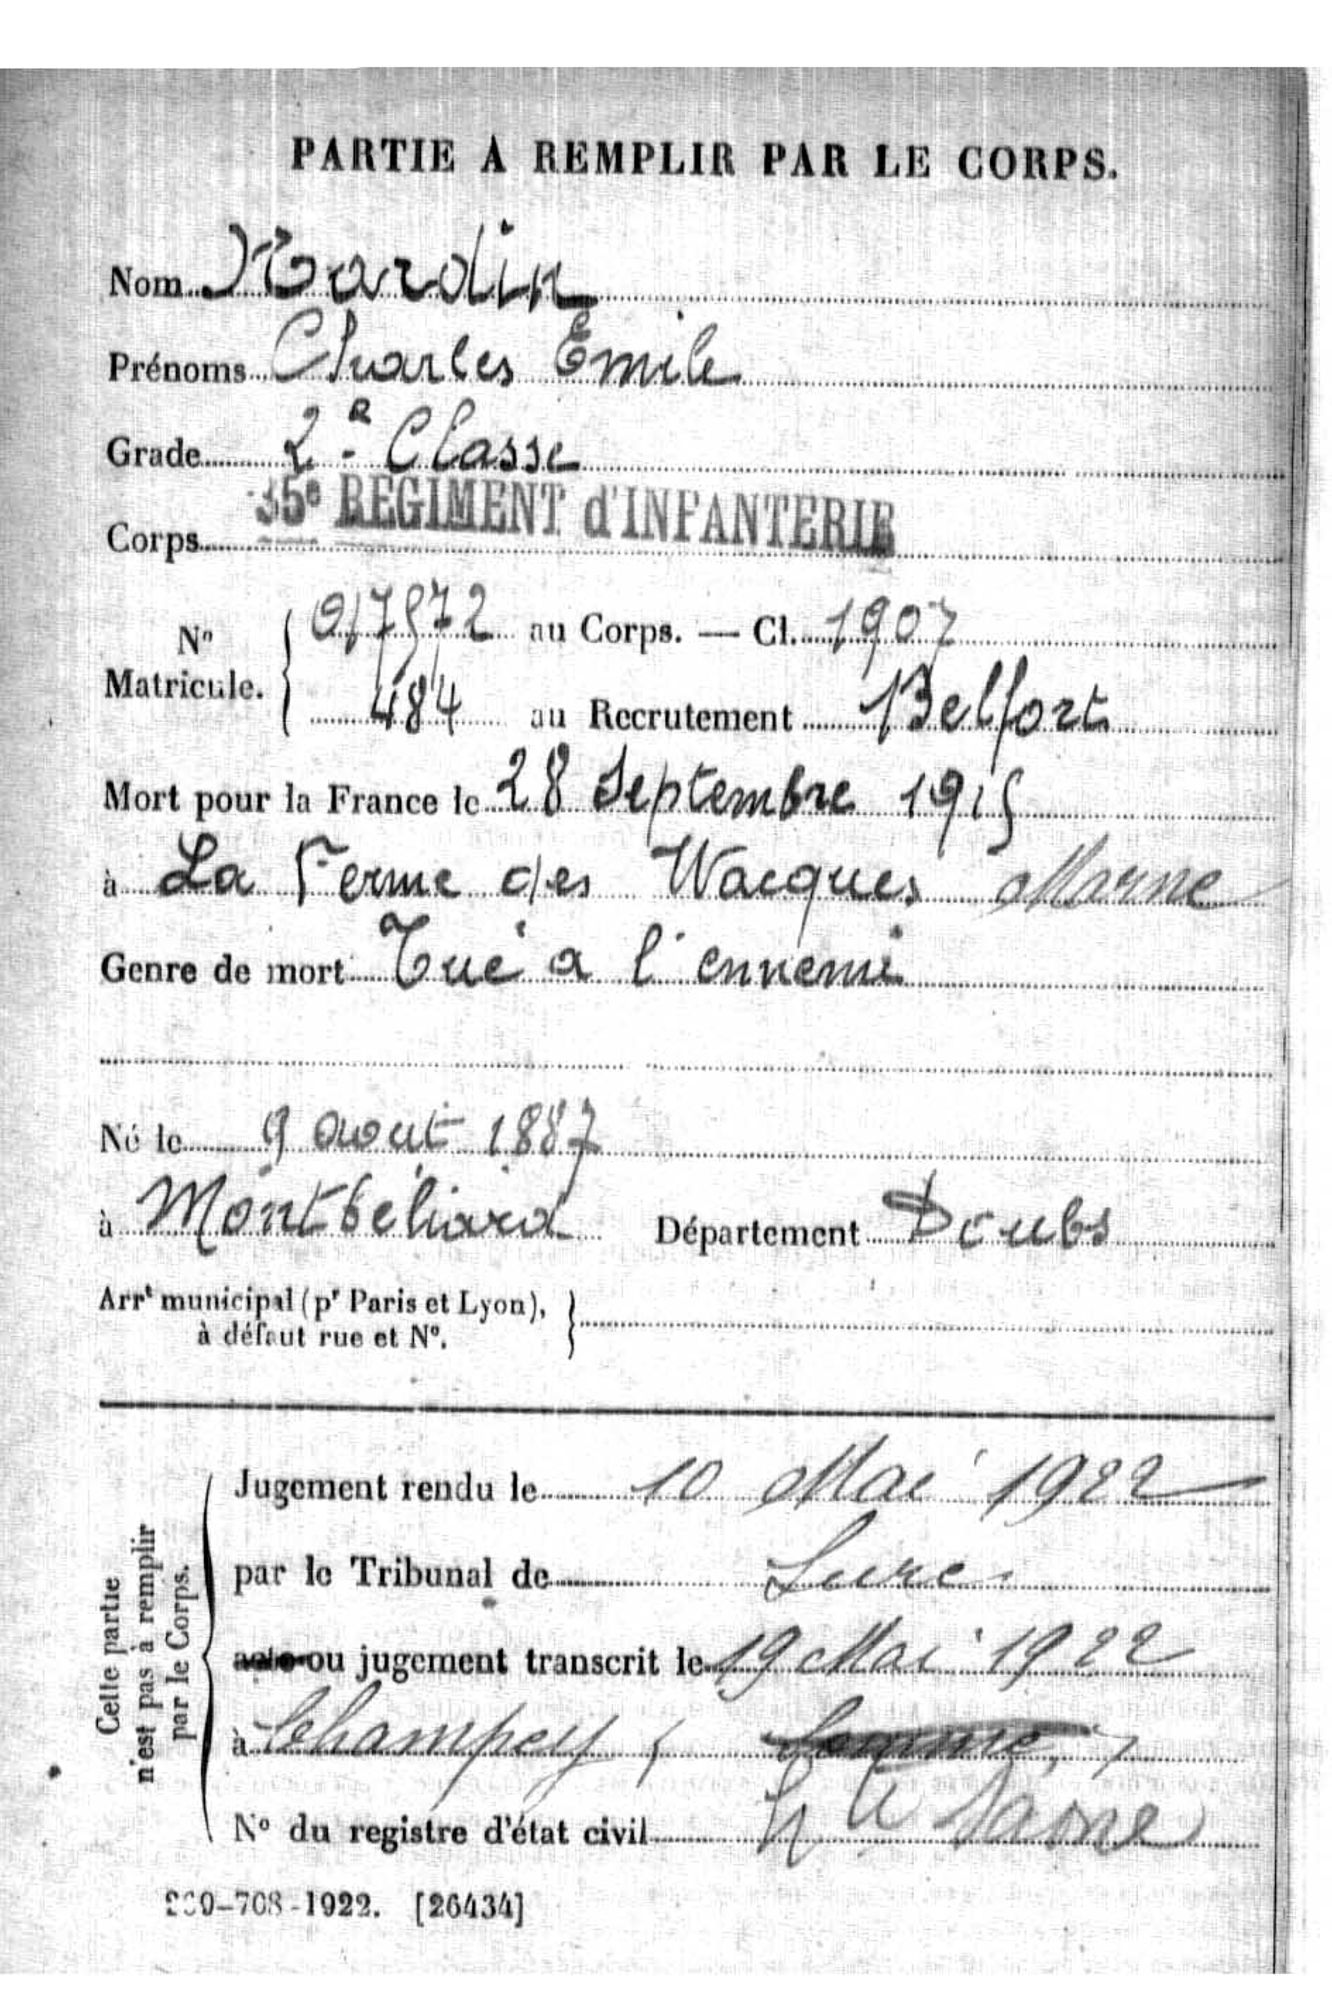 PARTIE A REMPLIR PAR LE CORPS.
Nom Nardin
Prénoms Charles Emile
Grade 2e Classe
Corps 35e REGIMENT d'INFANTERIE
No Matricule. { 017572 au Corps. — Cl. 1907
484 au Recrutement Belfort
Mort pour la France le 28 Septembre 1915
à La Ferme des Wacques Marne
Genre de mort Tué a l'ennemi
Né le 9 aout 1887
à Montbéliard Département Doubs
Arrt municipal (pr Paris et Lyon),
à défaut rue et No. }
Cette partie
n'est pas à remplir
par le Corps.
Jugement rendu le 10 Mai 1922
par le Tribunal de Lure
acte ou jugement transcrit le 19 Mai 1922
à Champey ( Somme )
No du registre d'état civil Hte Saone
-708-1922. [26434]